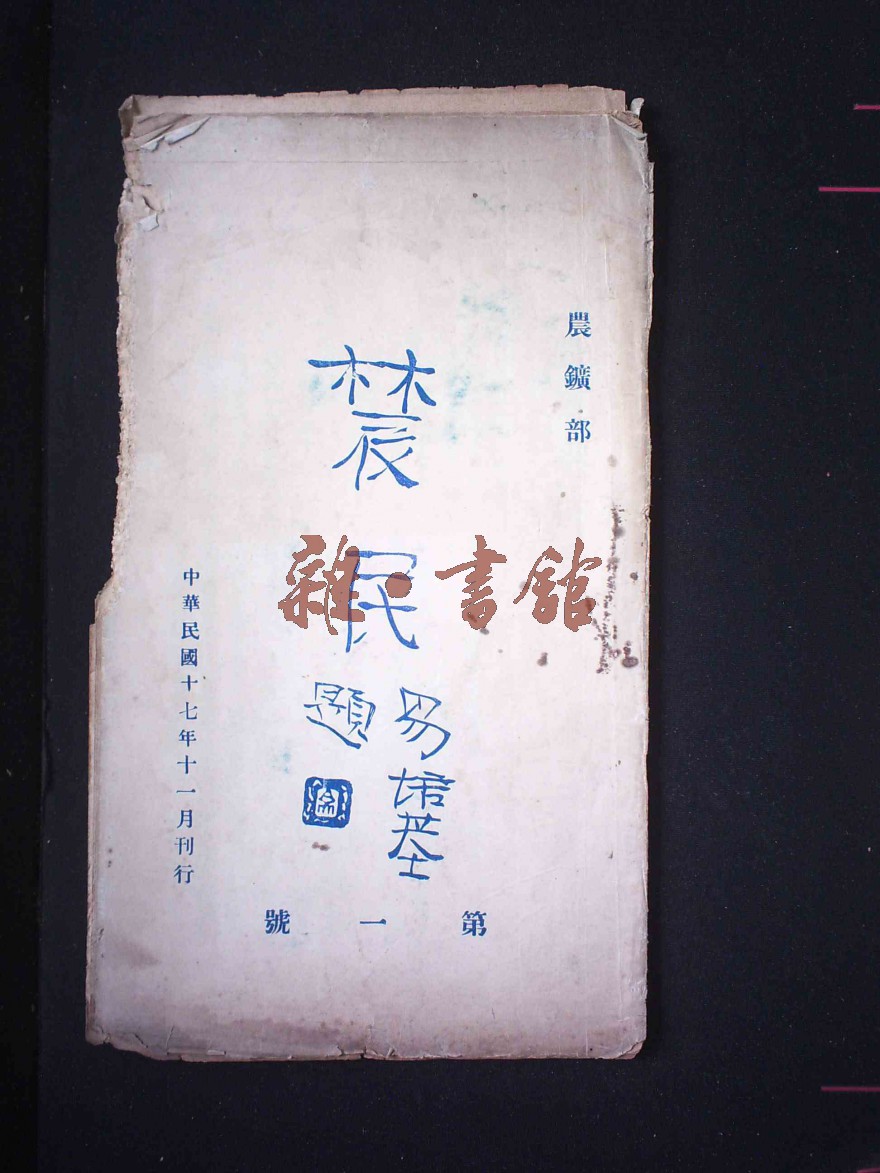 農鑛部
農民
易培基
題
第一號
中華民國十七年十一月刊行
雜·書館